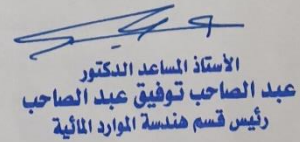 الأستاذ المساعد الدكتور
عبد الصاحب توفيق عبد الصاحب
رئيس قسم هندسة الموارد المائية